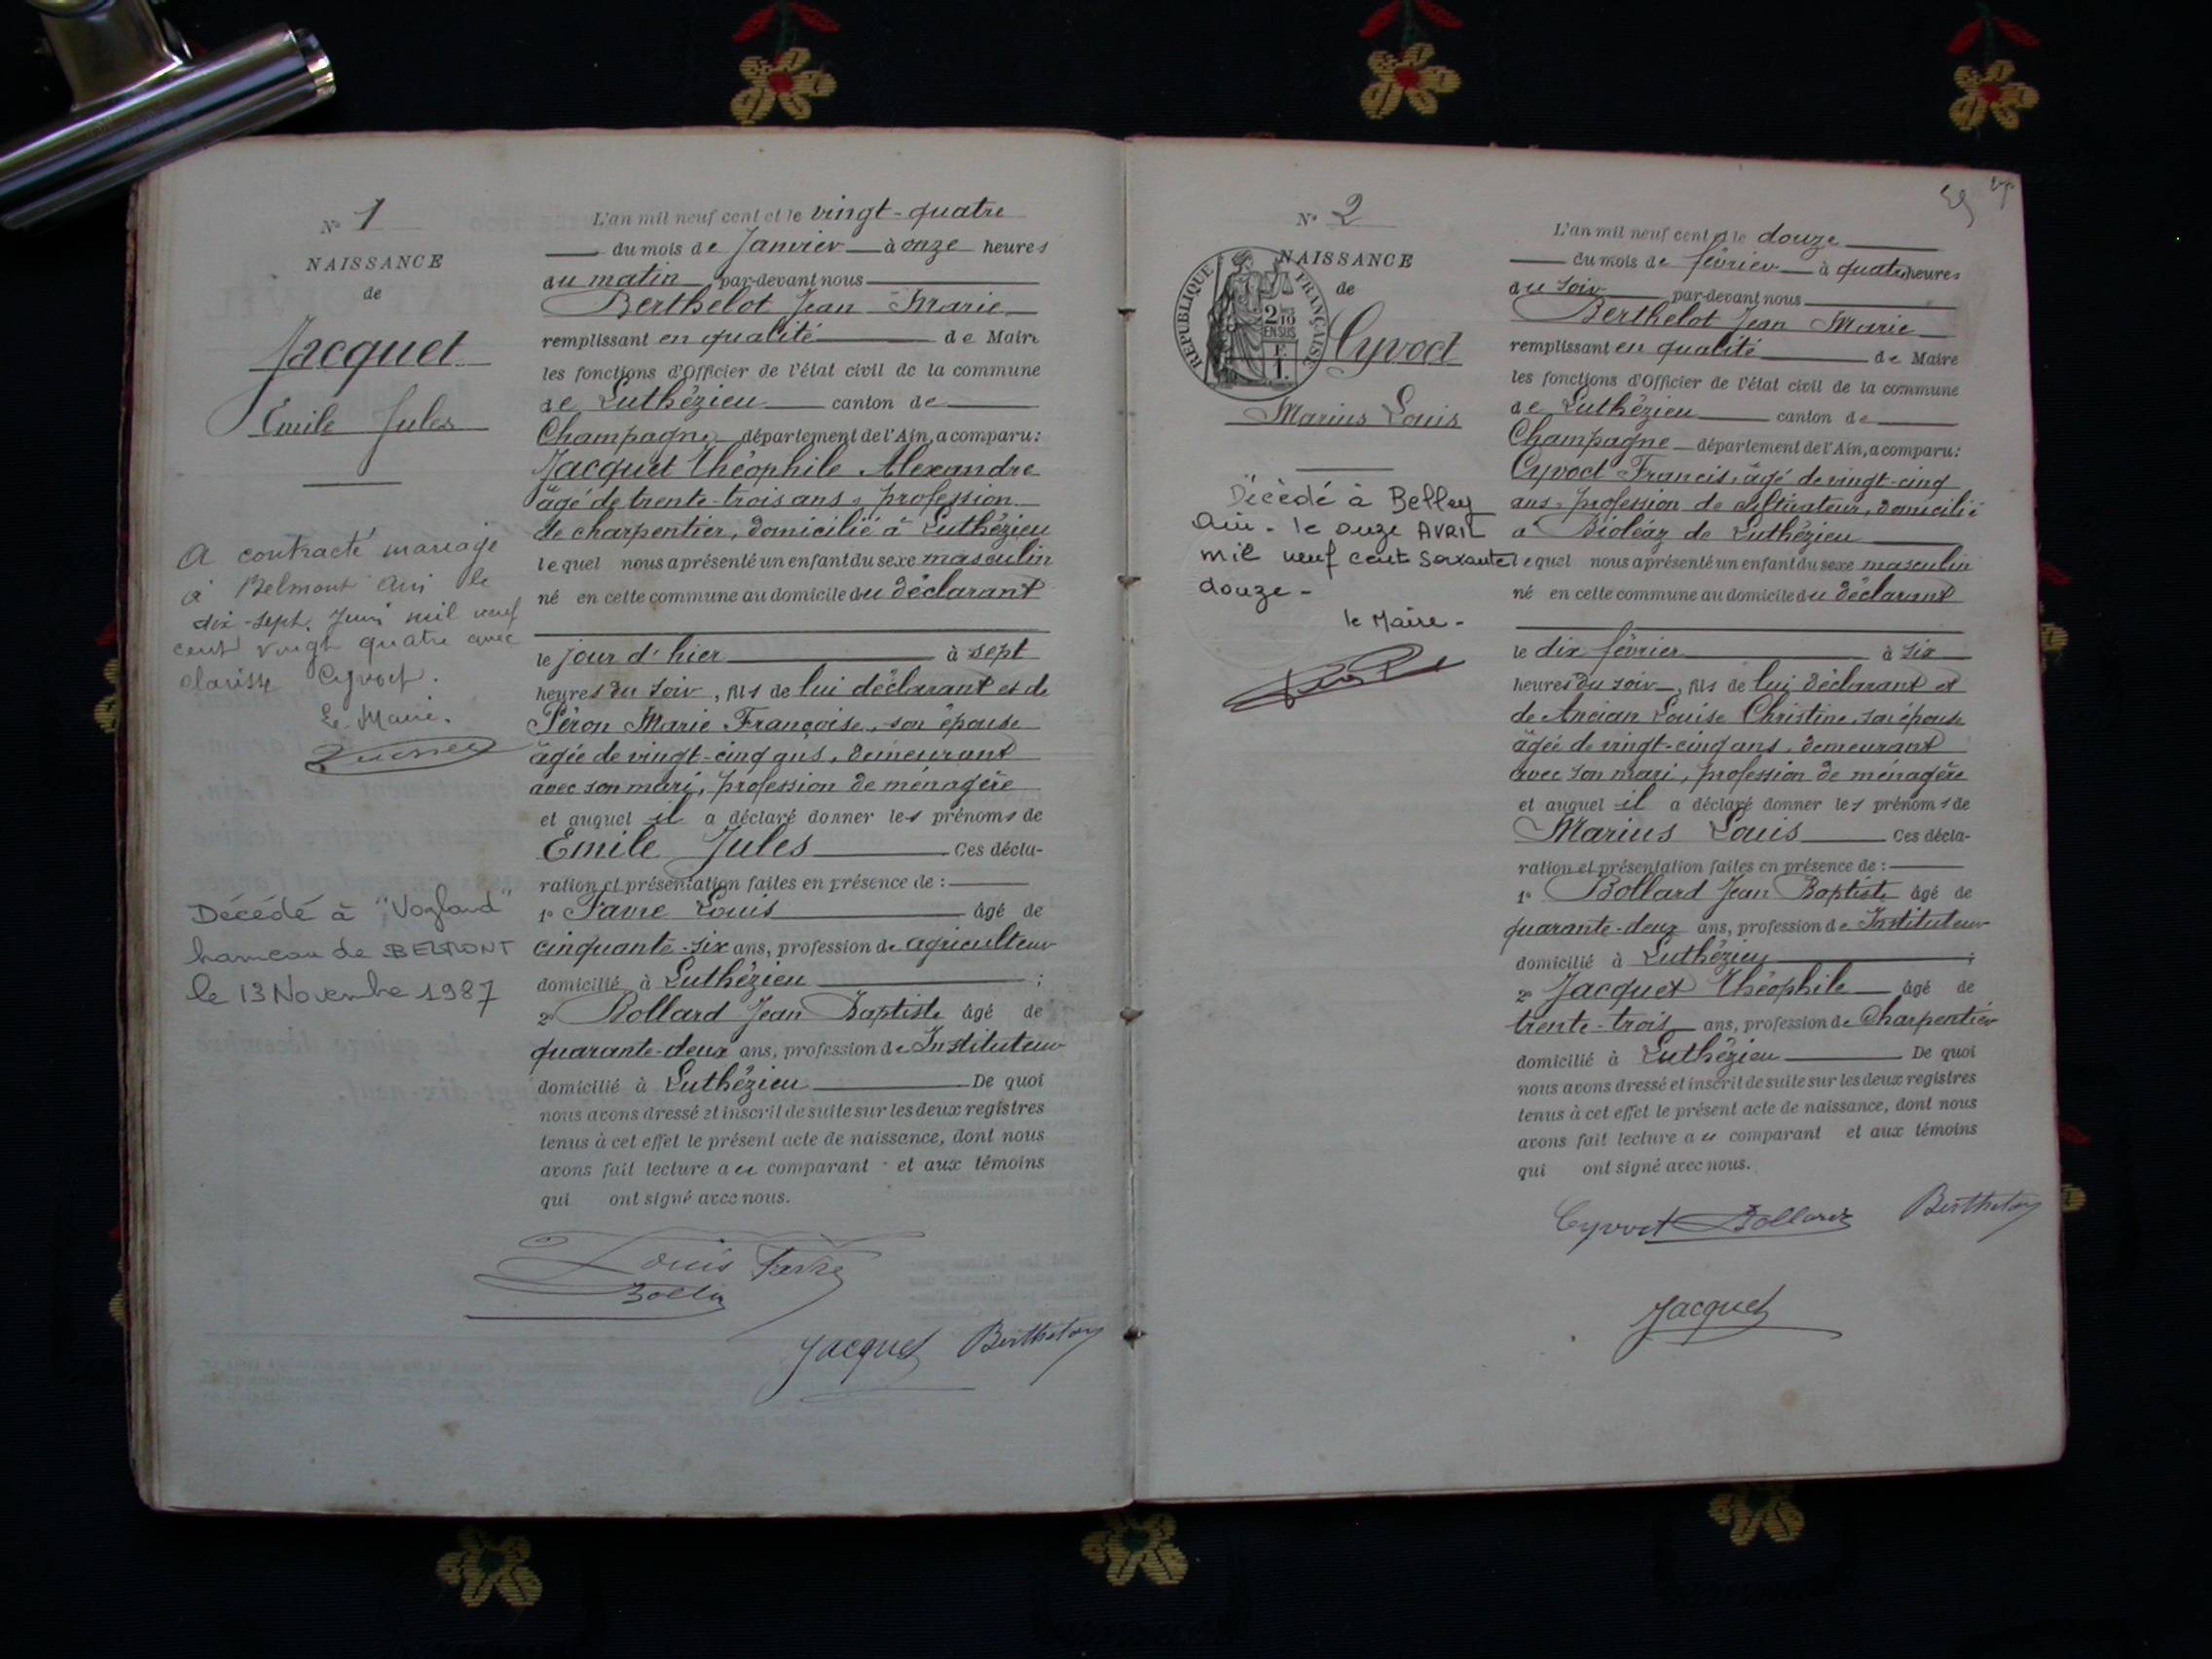 N° 1
NAISSANCE
de
Jacquet
Emile Jules
A contracté mariage
à Belmont Ain le
dix-sept Juin mil neuf
cent vingt quatre avec
Clarisse Cyvoct.
Le Maire.
Décédé à "Vogland"
hameau de BELMONT
le 13 Novembre 1987
L'an mil neuf cent et le vingt-quatre
du mois de Janvier à onze heures
du matin par-devant nous
Berthelot Jean Marie
remplissant en qualité de Maire
les fonctions d'Officier de l'état civil de la commune
de Luthézieu canton de
Champagne département de l'Ain, a comparu:
Jacquet Théophile Alexandre
âgé de trente-trois ans, profession
de charpentier, domicilié à Luthézieu
lequel nous a présenté un enfant du sexe masculin
né en cette commune au domicile du déclarant
le jour d'hier à sept
heures du soir, fils de lui déclarant et de
Péron Marie Françoise, son épouse
âgée de vingt-cinq ans, demeurant
avec son mari, profession de ménagère
et auquel il a déclaré donner les prénoms de
Emile Jules Ces décla-
ration et présentation faites en présence de :
1° Favre Louis âgé de
cinquante-six ans, profession de agriculteur
domicilié à Luthézieu ;
2° Bollard Jean Baptiste âgé de
quarante-deux ans, profession de Instituteur
domicilié à Luthézieu De quoi
nous avons dressé et inscrit de suite sur les deux registres
tenus à cet effet le présent acte de naissance, dont nous
avons fait lecture au comparant et aux témoins
qui ont signé avec nous.
Louis Favre
Jacquet Berthelot
N° 2
NAISSANCE
de
REPUBLIQUE FRANÇAISE
2/10
EN SUS
F.
1.
Cyvoct
Marius Louis
Décédé à Belley
Ain - le onze AVRIL
mil neuf cent soixante
douze -
le Maire -
L'an mil neuf cent et le douze
du mois de février à quatre heures
du soir par-devant nous
Berthelot Jean Marie
remplissant en qualité de Maire
les fonctions d'Officier de l'état civil de la commune
de Luthézieu canton de
Champagne département de l'Ain, a comparu:
Cyvoct Francis, âgé de vingt-cinq
ans, profession de cultivateur, domicilié
à Bioléaz de Luthézieu
lequel nous a présenté un enfant du sexe masculin
né en cette commune au domicile du déclarant
le dix février à six
heures du soir, fils de lui déclarant et
de Ancian Louise Christine, son épouse
âgée de vingt-cinq ans, demeurant
avec son mari, profession de ménagère
et auquel il a déclaré donner les prénoms de
Marius Louis Ces décla-
ration et présentation faites en présence de :
1° Bollard Jean Baptiste âgé de
quarante-deux ans, profession de Instituteur
domicilié à Luthézieu ;
2° Jacquet Théophile âgé de
trente-trois ans, profession de Charpentier
domicilié à Luthézieu De quoi
nous avons dressé et inscrit de suite sur les deux registres
tenus à cet effet le présent acte de naissance, dont nous
avons fait lecture au comparant et aux témoins
qui ont signé avec nous.
Cyvoct Bollard Berthelot
Jacquet